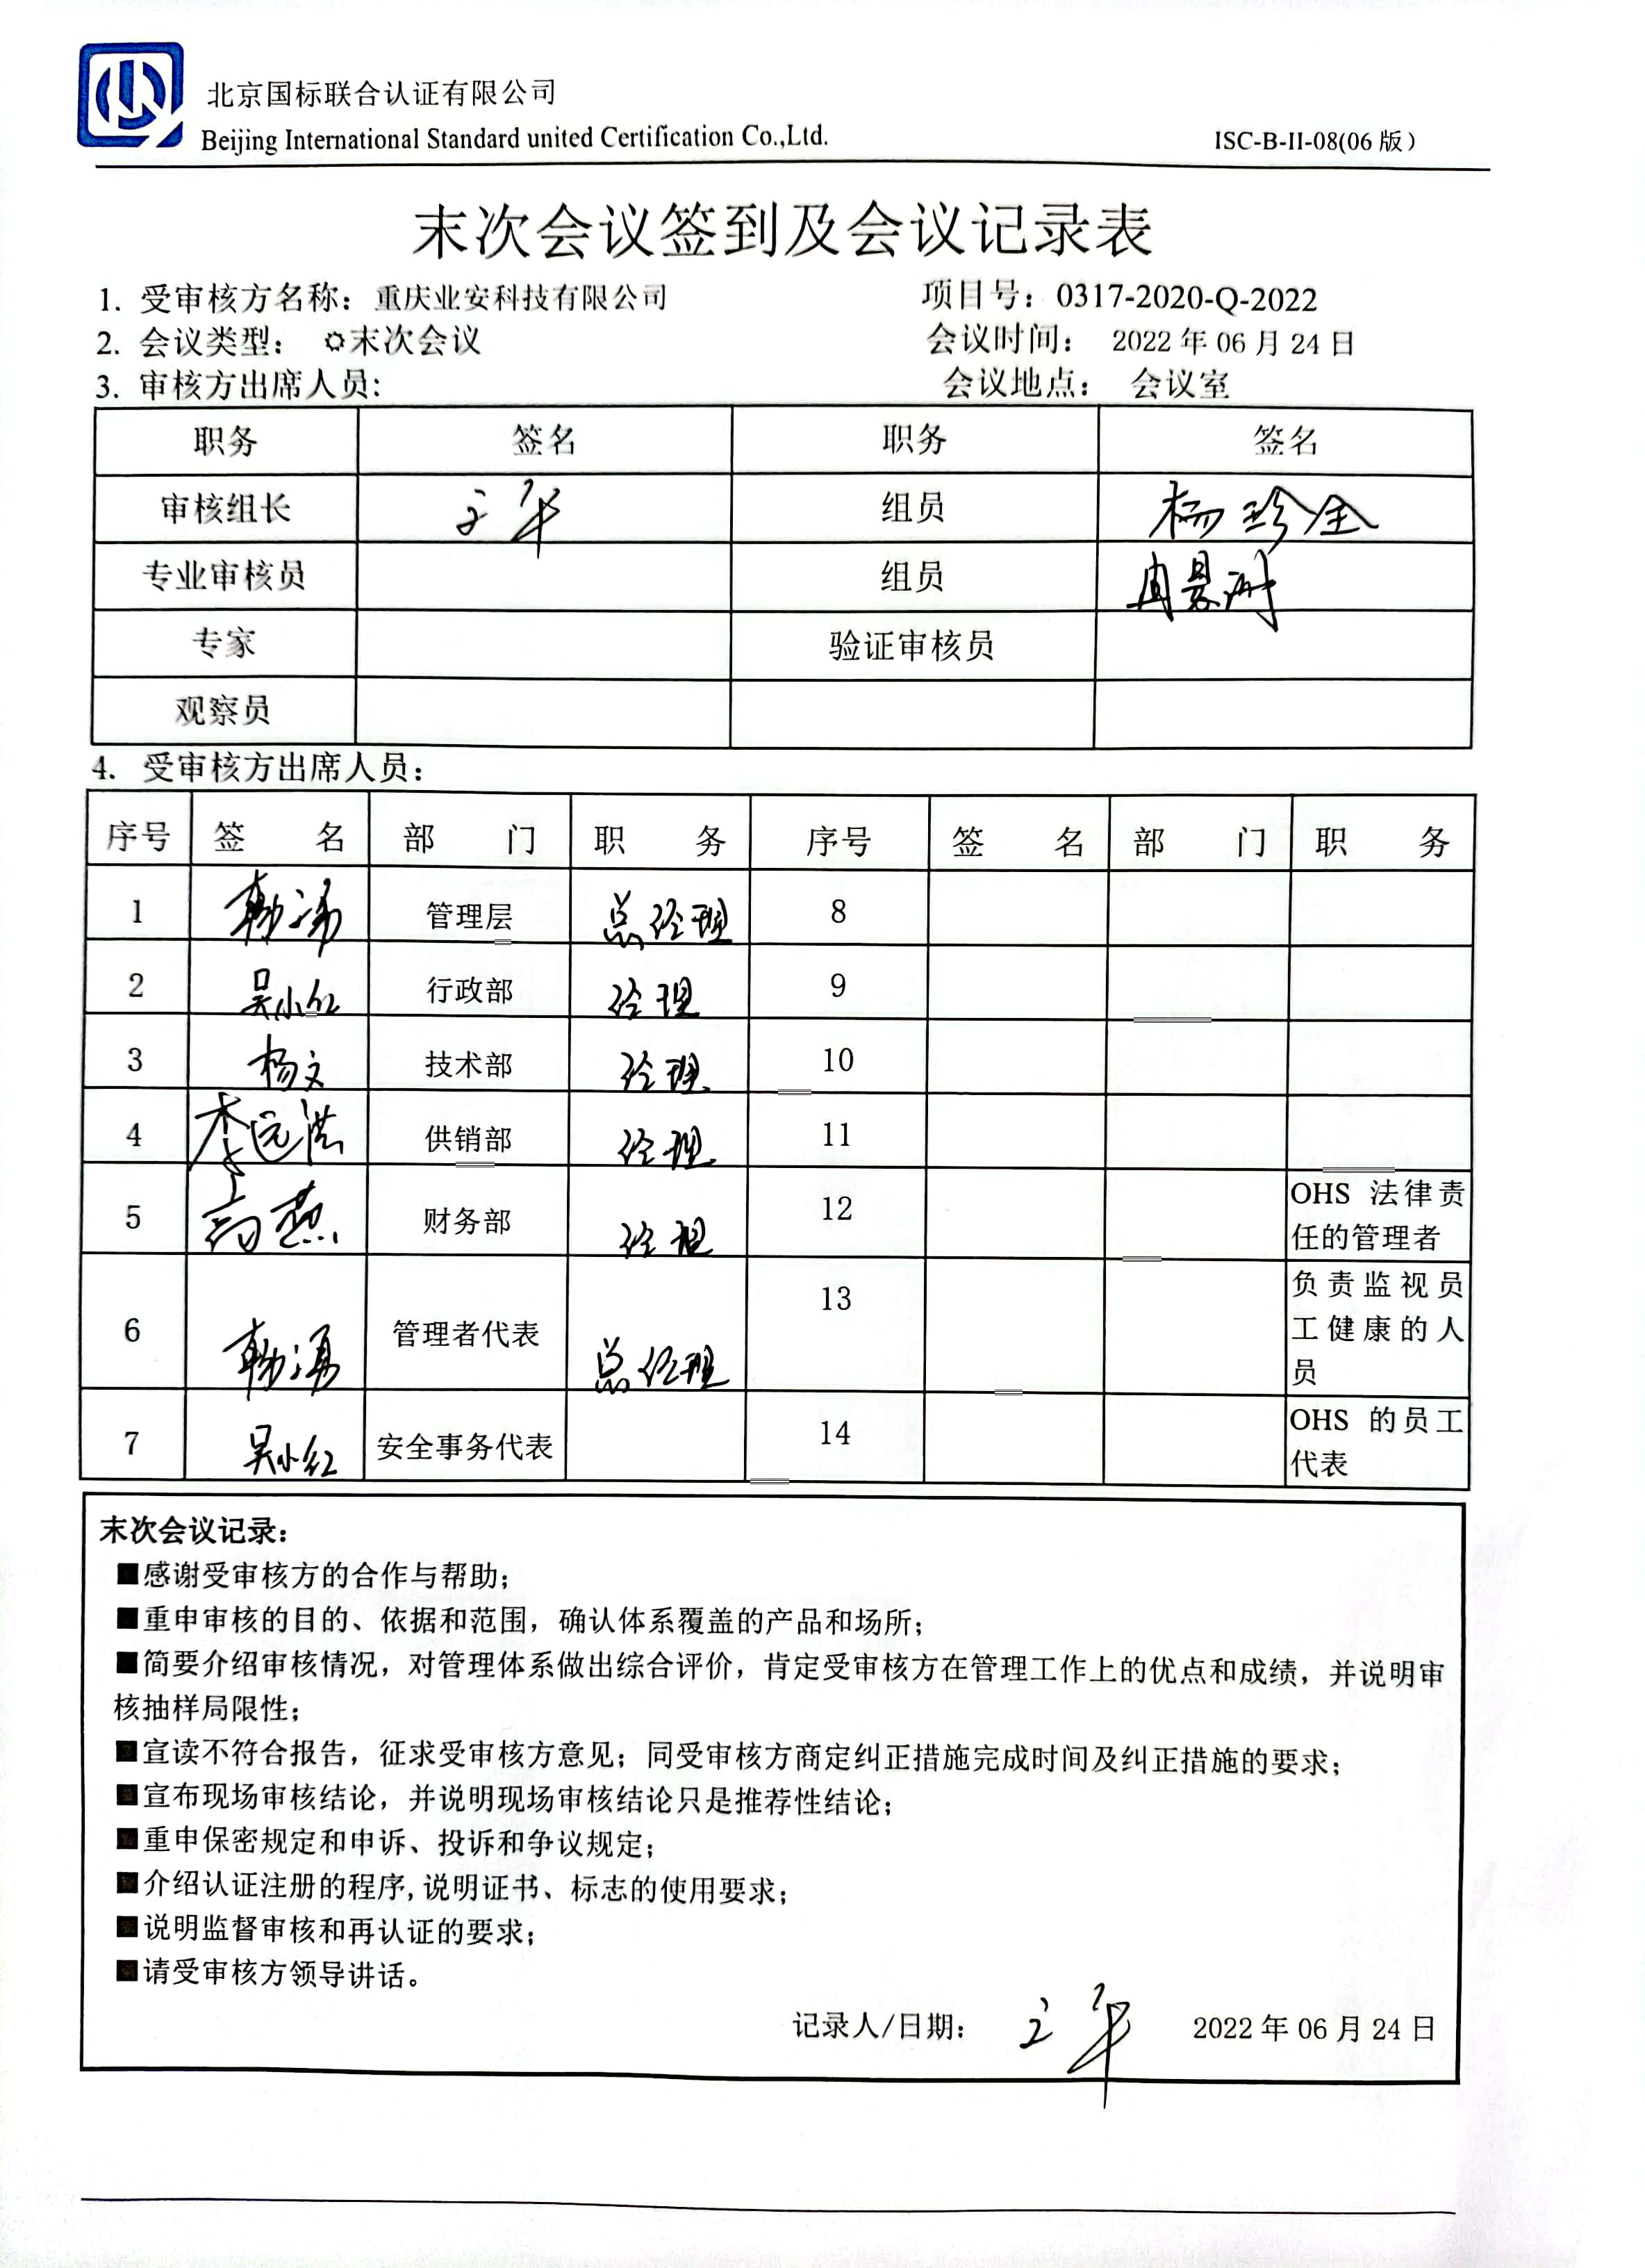 北京国标联合认证有限公司
Beijing International Standard united Certification Co.,Ltd.
ISC-B-II-08(06 版)
末次会议签到及会议记录表
1. 受审核方名称：重庆业安科技有限公司 项目号：0317-2020-Q-2022
2. 会议类型：末次会议 会议时间：2022 年 06 月 24 日
3. 审核方出席人员: 会议地点：会议室
职务 签名 职务 签名
审核组长 组员 杨珍全
专业审核员 组员
专家 验证审核员
观察员
4. 受审核方出席人员：
序号 签名 部门 职务 序号 签名 部门 职务
1 管理层 总经理 8
2 吴小红 行政部 经理 9
3 杨文 技术部 经理 10
4 李远洪 供销部 经理 11
5 高燕 财务部 经理 12 OHS 法律责
任的管理者
6 管理者代表 总经理 13 负责监视员
工健康的人
员
7 吴小红 安全事务代表 14 OHS 的员工
代表
末次会议记录：
■感谢受审核方的合作与帮助；
■重申审核的目的、依据和范围，确认体系覆盖的产品和场所；
■简要介绍审核情况，对管理体系做出综合评价，肯定受审核方在管理工作上的优点和成绩，并说明审
核抽样局限性；
■宣读不符合报告，征求受审核方意见；同受审核方商定纠正措施完成时间及纠正措施的要求；
■宣布现场审核结论，并说明现场审核结论只是推荐性结论；
■重申保密规定和申诉、投诉和争议规定；
■介绍认证注册的程序,说明证书、标志的使用要求；
■说明监督审核和再认证的要求；
■请受审核方领导讲话。
记录人/日期： 2022 年 06 月 24 日